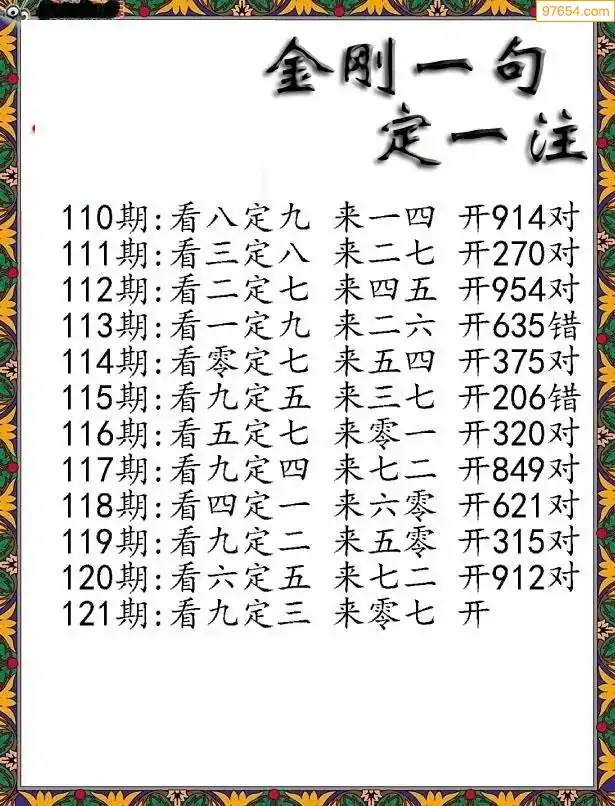 97654.com
金刚一句
定一注
110期:看八定九 来一四 开914对
111期:看三定八 来二七 开270对
112期:看二定七 来四五 开954对
113期:看一定九 来二六 开635错
114期:看零定七 来五四 开375对
115期:看九定五 来三七 开206错
116期:看五定七 来零一 开320对
117期:看九定四 来七二 开849对
118期:看四定一 来六零 开621对
119期:看九定二 来五零 开315对
120期:看六定五 来七二 开912对
121期:看九定三 来零七 开